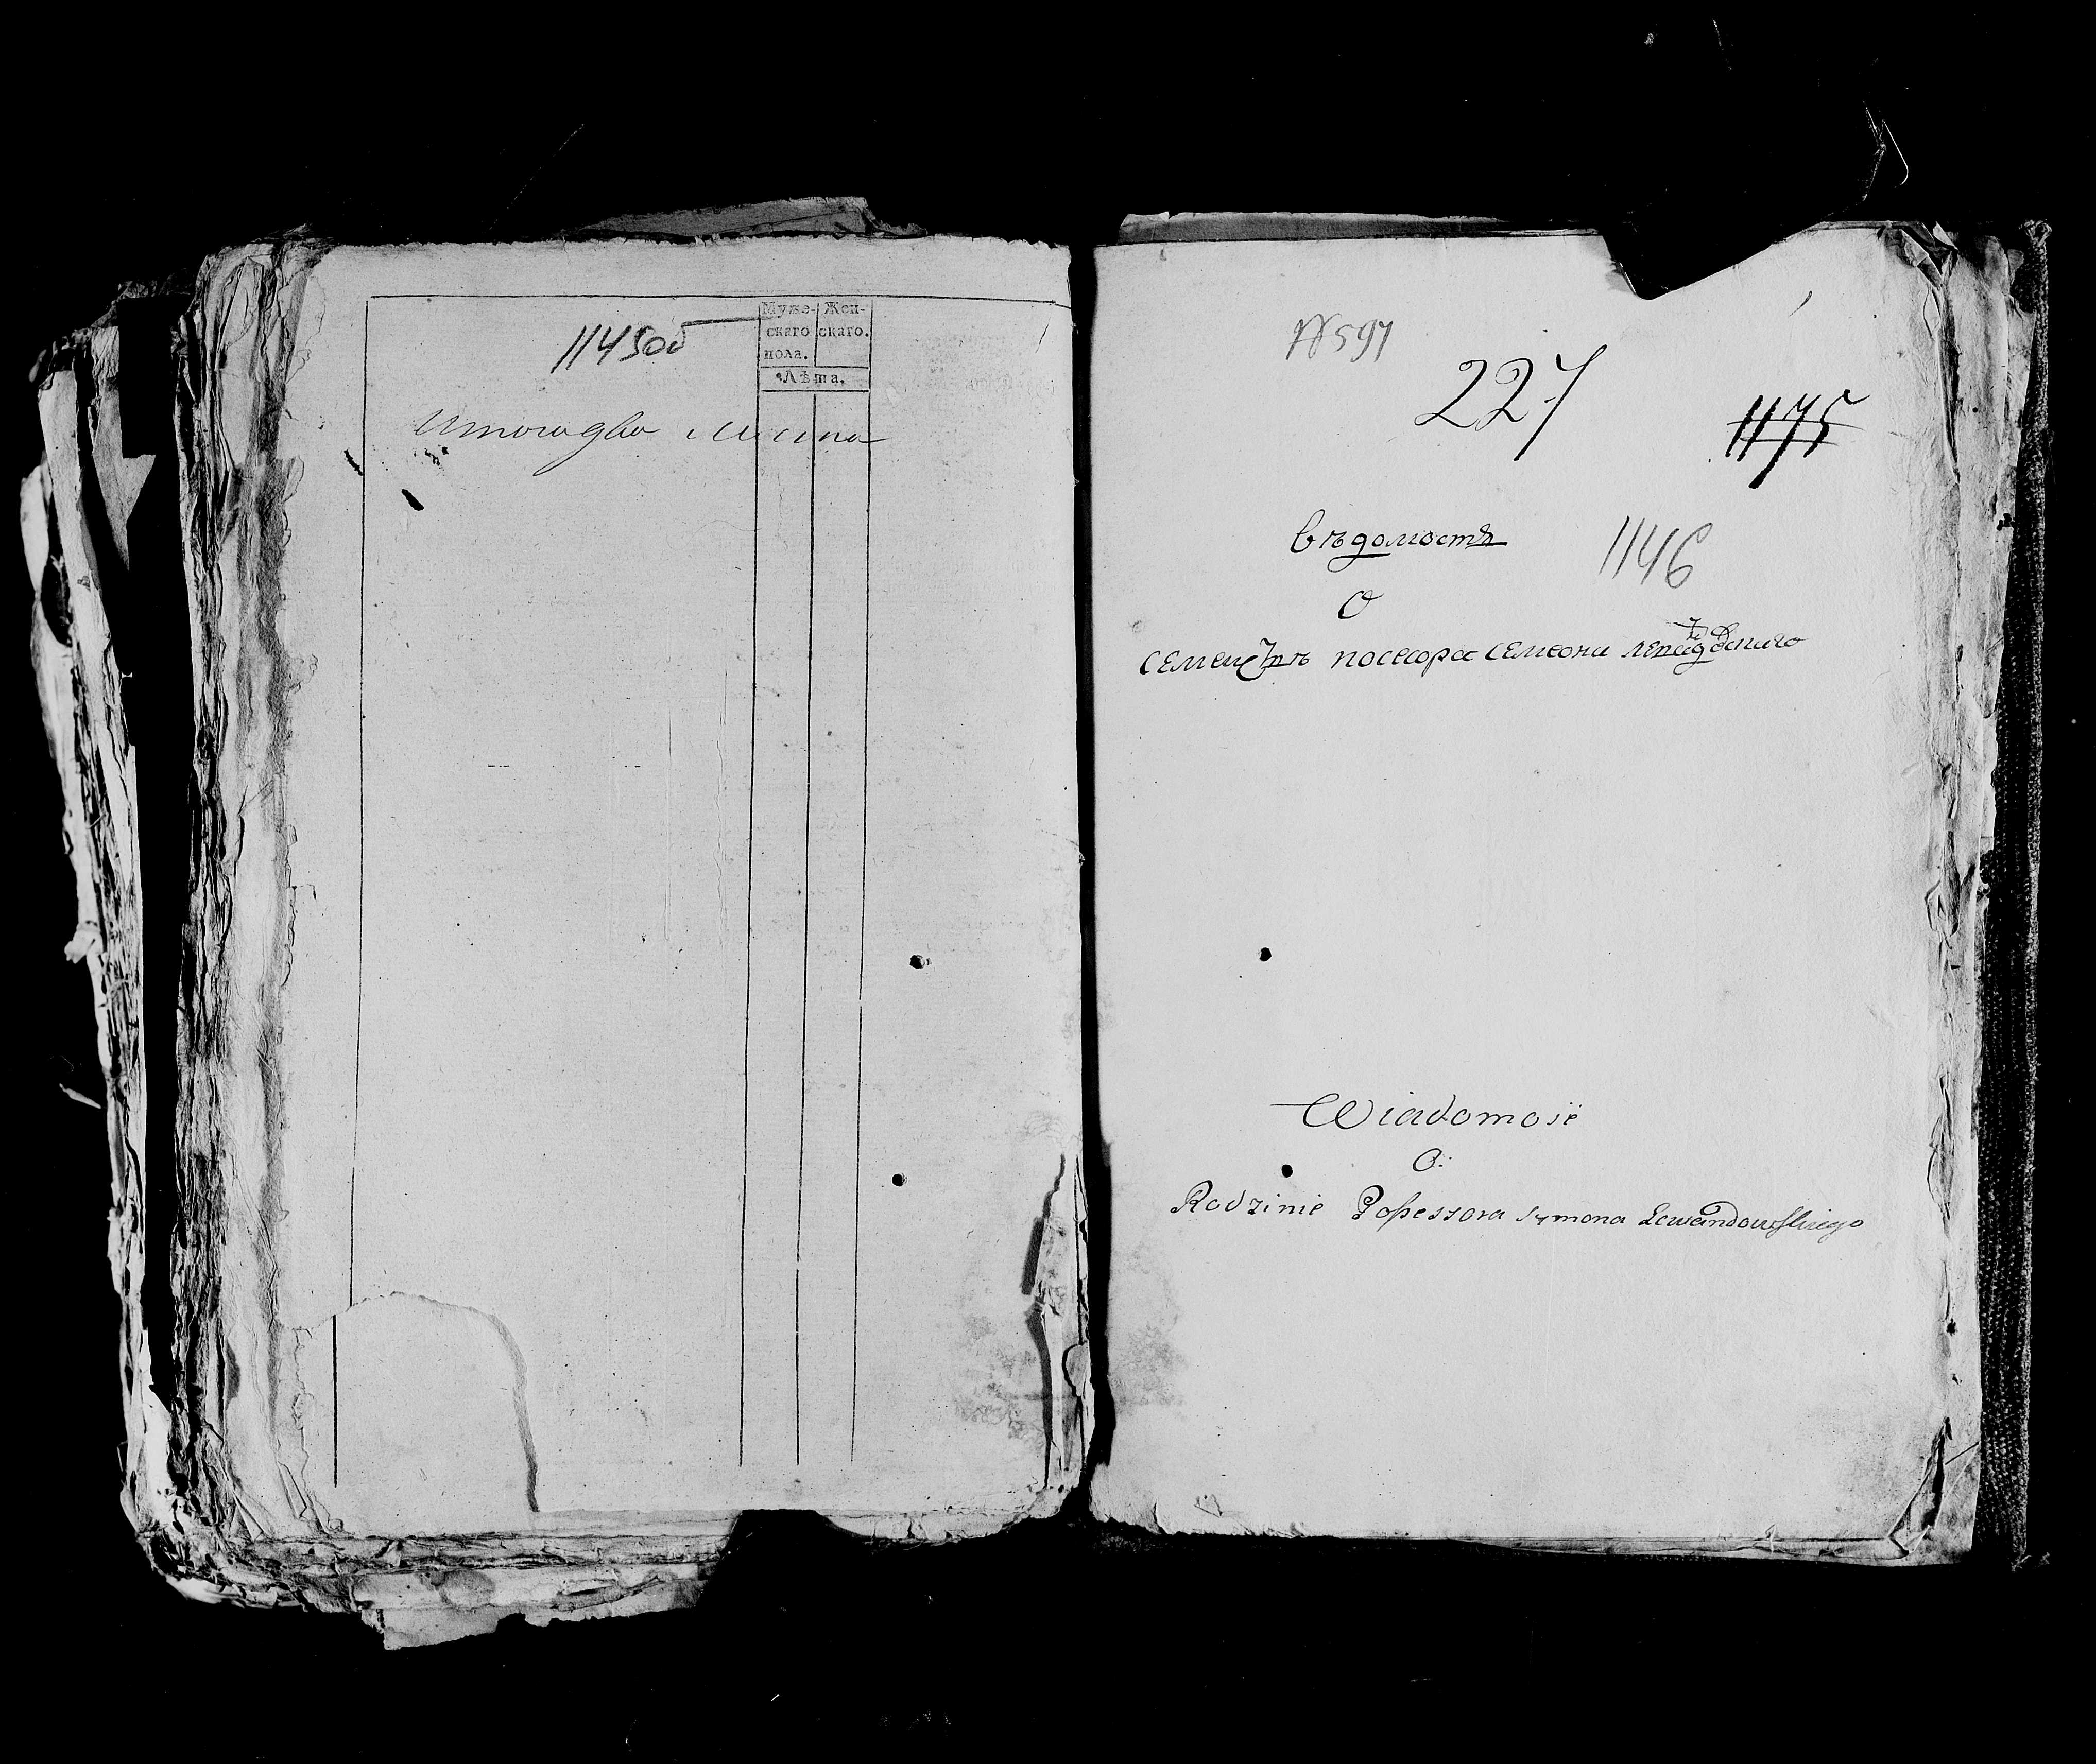 1145об
Муже- Жен-
скаго скаго.
пола.
Лѣта.
Итого два листа
№ 597
227
1175
Вѣдомость
1146
О
семействѣ посесора семеона левандовскаго
Wiadomość
O:
Rodzinie Possessora Symona Lewandowskiego